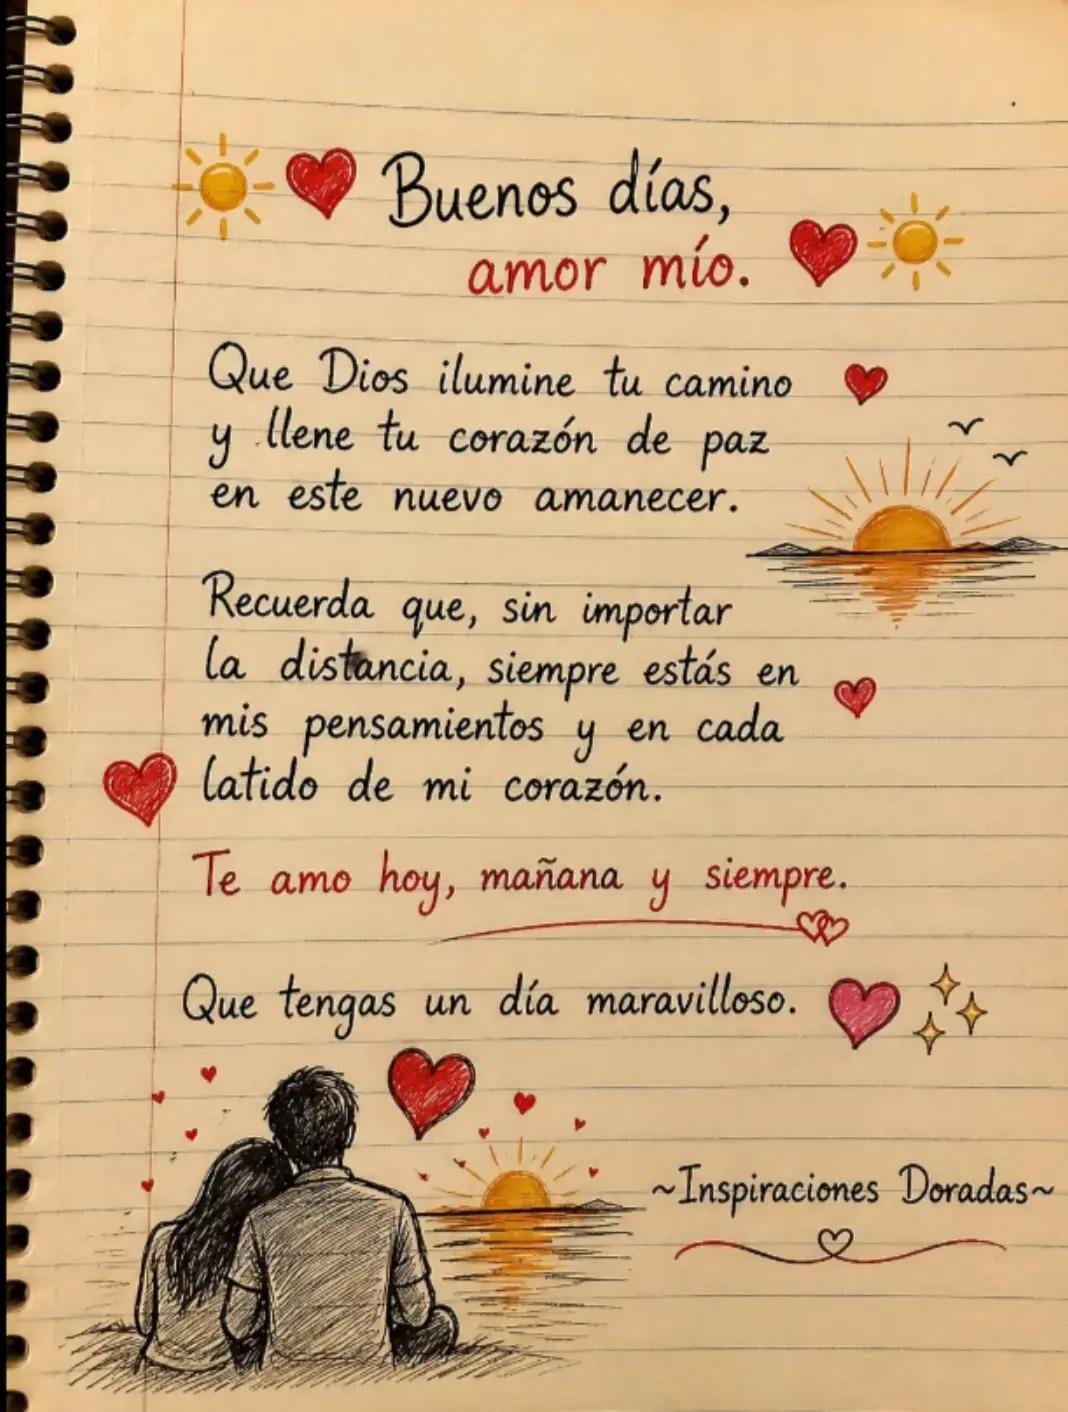 Buenos días,
amor mío.
Que Dios ilumine tu camino
y llene tu corazón de paz
en este nuevo amanecer.
Recuerda que, sin importar
la distancia, siempre estás en
mis pensamientos y en cada
latido de mi corazón.
Te amo hoy, mañana y siempre.
Que tengas un día maravilloso.
~Inspiraciones Doradas~